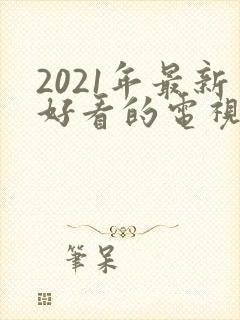 2021年最新
好看的電視
筆呆